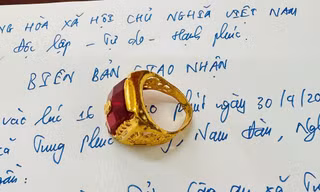 NG HÒA XÃ HỘI CHỦ NGHĨA VIỆT NAM
Độc lập - Tự do - Hạnh phúc.
BIÊN BẢN GIAO NHẬN
vào lúc 16 phút ngày 30/9/20
xã Trung phúc Nam Đàn, Ngh